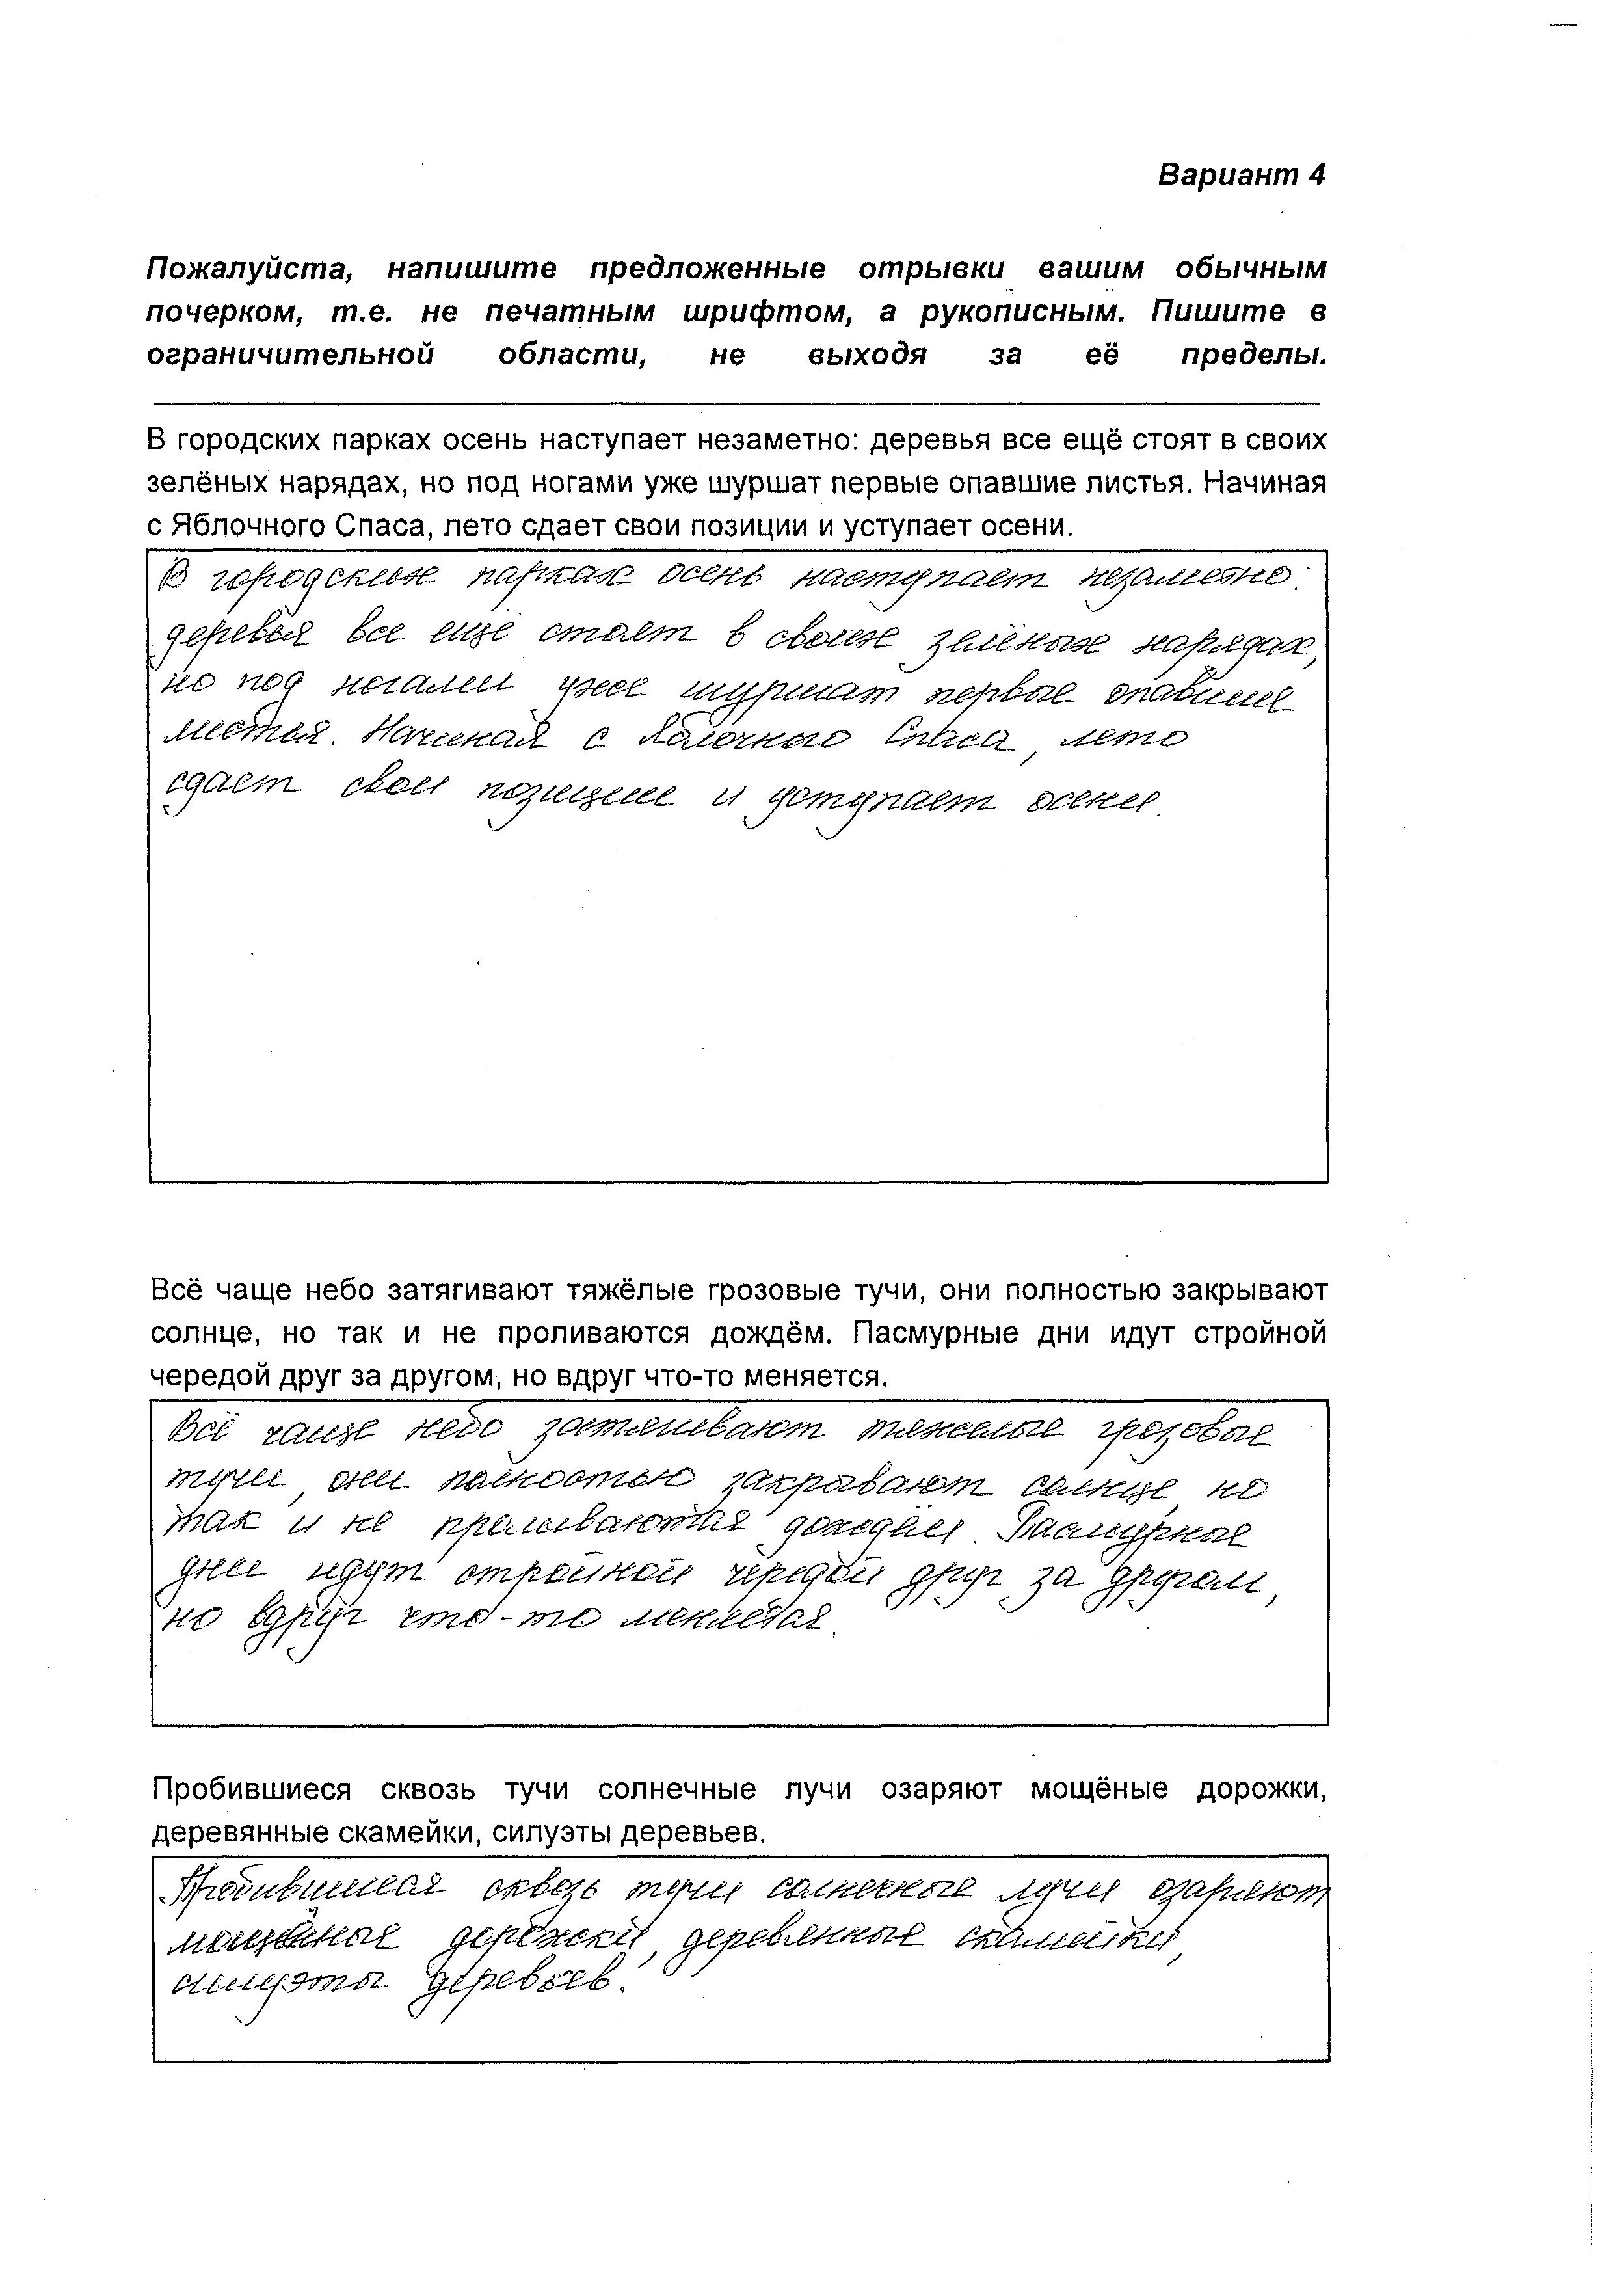 Вариант 4
Пожалуйста, напишите предложенные отрывки вашим обычным
почерком, т.е. не печатным шрифтом, а рукописным. Пишите в
ограничительной области, не выходя за её пределы.
В городских парках осень наступает незаметно: деревья все ещё стоят в своих
зелёных нарядах, но под ногами уже шуршат первые опавшие листья. Начиная
с Яблочного Спаса, лето сдает свои позиции и уступает осени.
В городских парках осень наступает незаметно:
деревья все ещё стоят в своих зелёных нарядах,
но под ногами уже шуршат первые опавшие
листья. Начиная с Яблочного Спаса, лето
сдает свои позиции и уступает осени.
Всё чаще небо затягивают тяжёлые грозовые тучи, они полностью закрывают
солнце, но так и не проливаются дождём. Пасмурные дни идут стройной
чередой друг за другом, но вдруг что-то меняется.
Всё чаще небо затягивают тяжелые грозовые
тучи, они полностью закрывают солнце, но
так и не проливаются дождём. Пасмурные
дни идут стройной чередой друг за другом,
но вдруг что-то меняется.
Пробившиеся сквозь тучи солнечные лучи озаряют мощёные дорожки,
деревянные скамейки, силуэты деревьев.
Пробившиеся сквозь тучи солнечные лучи озаряют
мощёные дорожки, деревянные скамейки,
силуэты деревьев.